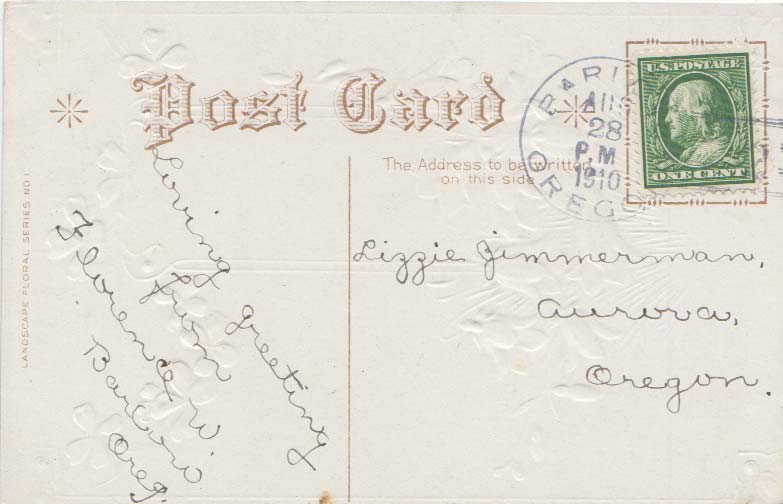 Post Card
The Address to be written
on this side
U.S. POSTAGE
ONE CENT
AUG
28
P M
1910
OREG
LANDSCAPE FLORAL SERIES NO 1.
Loving greeting
from
Florence W
Barlow
Oreg.
Lizzie Zimmerman,
Aurora,
Oregon.